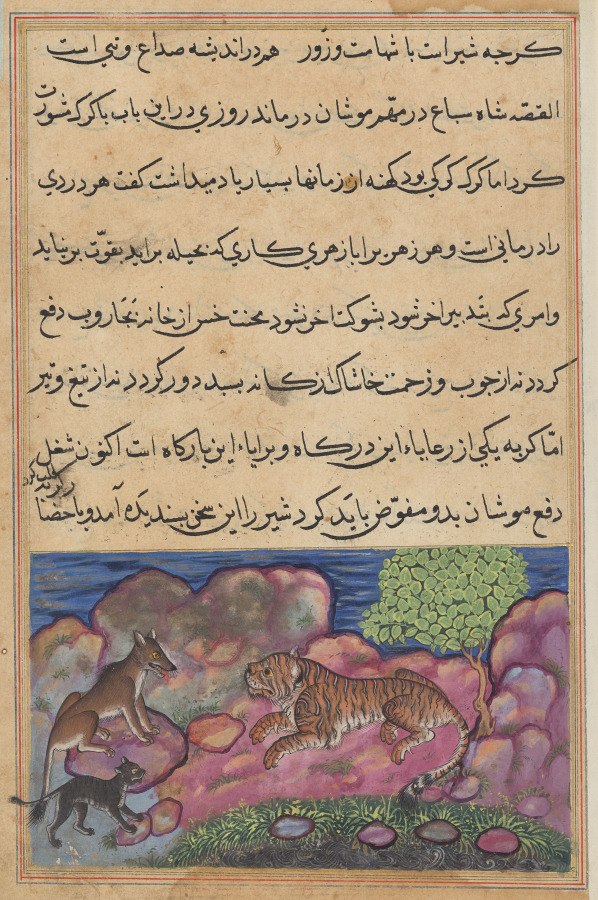 کرجه شیر است با شهامت و زور هم در اندیشه صداع و تبی است
القصّه شاه سباع در مهّم موشان درماند روزی در این باب باکرک مشورت
کرد اما کرک کرکی بود کهنه از زمانها بسیار یاد میداشت کفت هر دردی
را درمانی است و هر زهر برا بازهری کاری که بحیله براید بقوّت برنیاید
وامری که بتدبیر اخر شود بشوکت اخر نشود محنت خس از خانه بجاروب دفع
کردد نه از جوب و زحمت خاشاک از کانه بسبد دور کردد نه از تیغ و تیر
امّا کربه یکی از رعایاء این درکاه و برایاء این بارکاه است اکنون شغل
دفع موشان بدو مفوّض باید کرد شیر را این سخن بسندیده آمد و باحضار
کربه